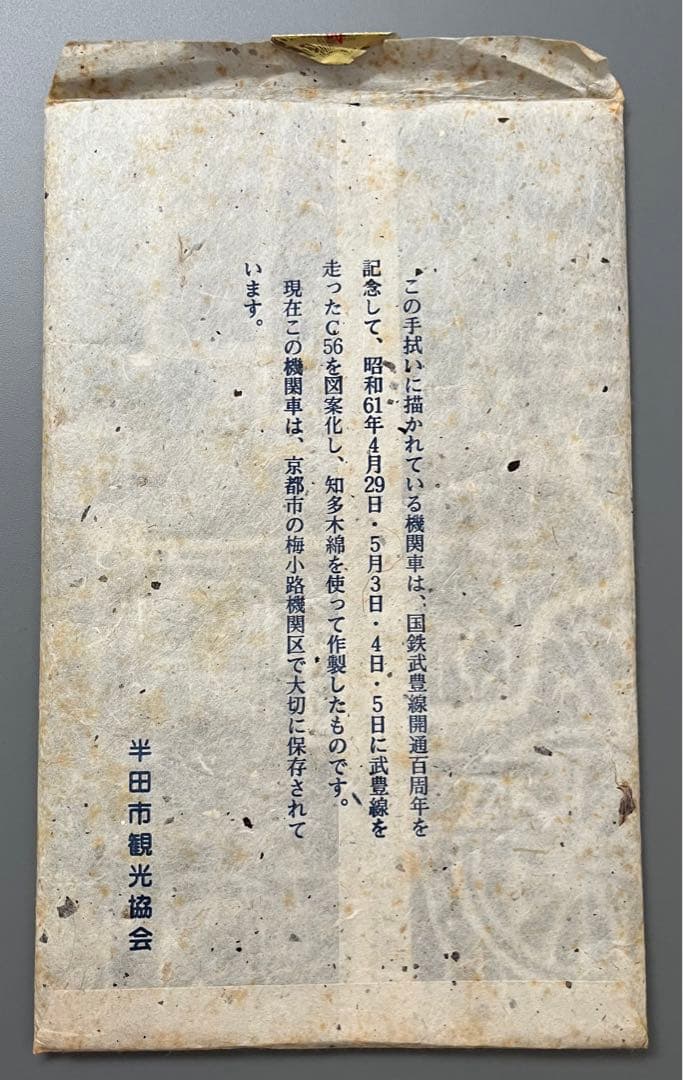 この手拭いに描かれている機関車は、国鉄武豊線開通百周年を
記念して、昭和61年4月29日・5月3日・4日・5日に武豊線を
走ったC56を図案化し、知多木綿を使って作製したものです。
現在この機関車は、京都市の梅小路機関区で大切に保存されて
います。
半田市観光協会